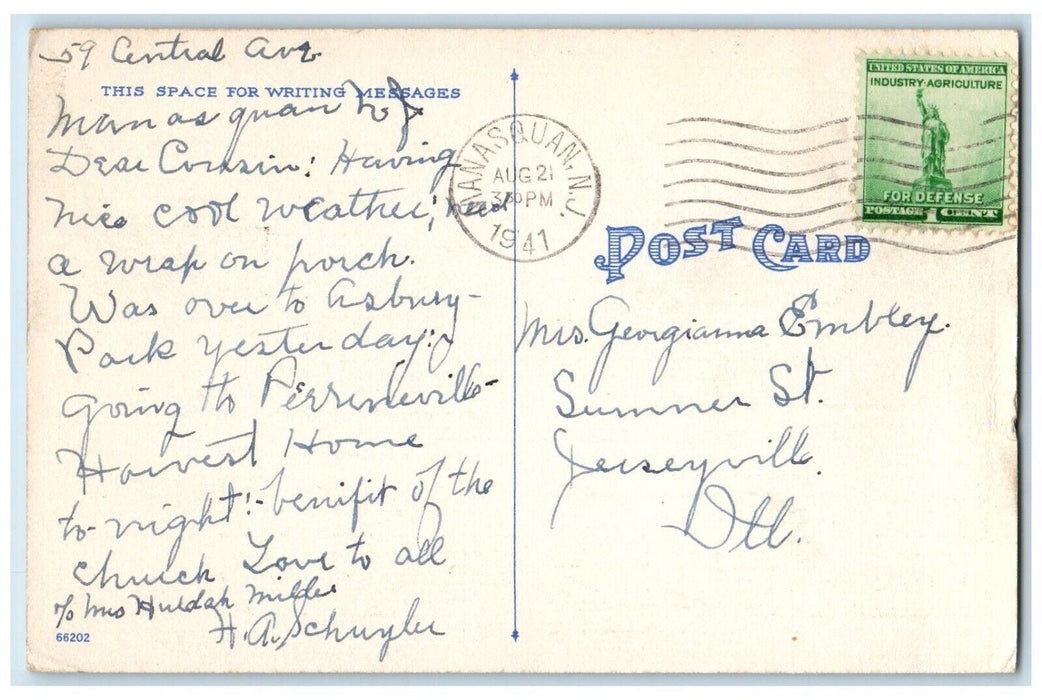 59 Central Ave
THIS SPACE FOR WRITING MESSAGES
Manasquan N J
Dear Cousin: Having
nice cool weather, need
a wrap on porch.
Was over to Asbury-
Park yesterday:
going to Perrineville-
Harvest Home
to-night:- benifit of the
church Love to all
c/o Mrs Huldah Miller
H. A. Schuyler
66202
MANASQUAN, N.J.
AUG 21
330 PM
1941
UNITED STATES OF AMERICA
INDUSTRY-AGRICULTURE
FOR DEFENSE
POSTAGE 1 CENT
POST CARD
Mrs. Georgianna Embley.
Sumner St.
Jerseyville.
Ill.